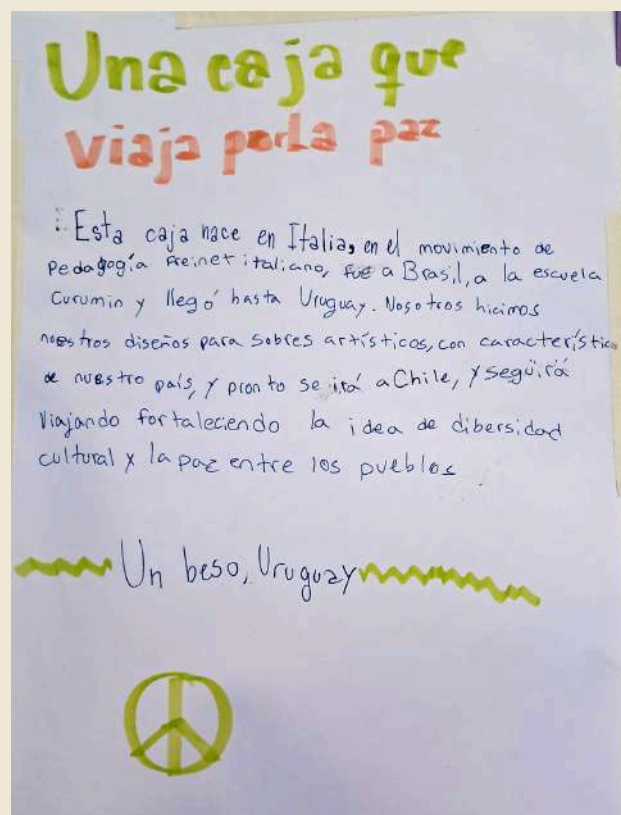 Una caja que
viaja por la paz
Esta caja nace en Italia, en el movimiento de
Pedagogía Freinet italiano, fue a Brasil, a la escuela
Curumin y llegó hasta Uruguay. Nosotros hicimos
nuestros diseños para sobres artísticos, con característic
de nuestro país, y pronto se irá a Chile, y seguirá
Viajando fortaleciendo la idea de dibersidad
cultural y la paz entre los pueblos.
Un beso, Uruguay